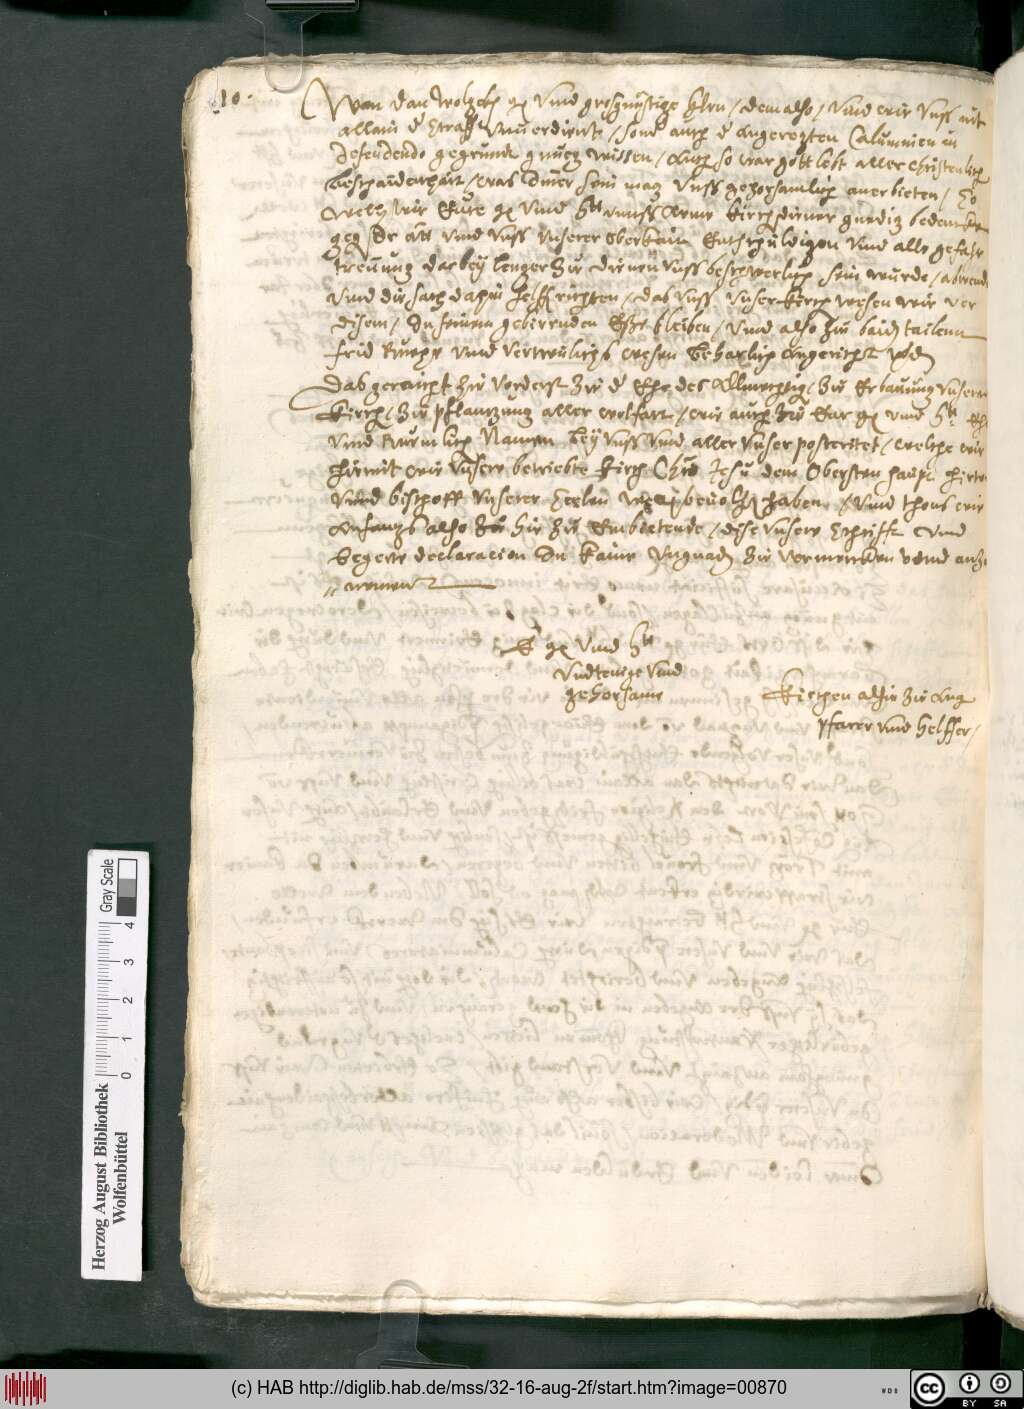 10.
Wan dan Wolgeb: gn vnd großgünstige hern / dem also / vnd wir vnss nit
allain d straff vnuerdient / sond auch d angeregten Calumnien in
defendendo gegrundt gnueg wissen / auch so war gott lebt aller christenlich
beschaidenhait / was Imer sein mag vnss gehorsamlich anerbieten / So
welle wir Eure gn vnd htt vmss arme kirchdiener gnedig bedencken
geg vnd vnss vnserer oberkait Entschuldigen vnd alle gefahr
trennung darbey lenger zu dienen vnss beschwerlich sein wurde / abwende
vnd die sach dahin helffen richten / das vnss vnser kirch wesen wie vor
disem / In seinem gebierenden bleiben / vnd also zu baid tailenn
frid Ruehe vnd vertreulichs wesen beharlich angericht werd
Das geraicht zu vorderst zu d Ehr des Almechtig / zu Erbauung vnserer
kirch / zu pflantzung aller wolfart / wie auch zu Eur gn vnd htt Ehr
vnd Ruemlich Namen bey vnss vnd aller vnser posteritet / welche wir
hiemit wie vnsere betriebte kirch Christo Jesu dem Obersten haupt hirten
vnnd bischoff vnserer seelen beuolhen haben / vnd thons wir
Anfangs also hie zu Embietende / dise vnsere schrifft vnd
begerte declaracion In kaine vngnad zu vermercken vnnd anzu
nemen
E gn vnd htt
vndtenige vnd
gehorsame
Kirchen alhie zu Aug
Pfarer vnd helffer /
Herzog August Bibliothek
Wolfenbüttel
0 1 2 3 4
Gray Scale
(c) HAB http://diglib.hab.de/mss/32-16-aug-2f/start.htm?image=00870
WDB
cc BY SA